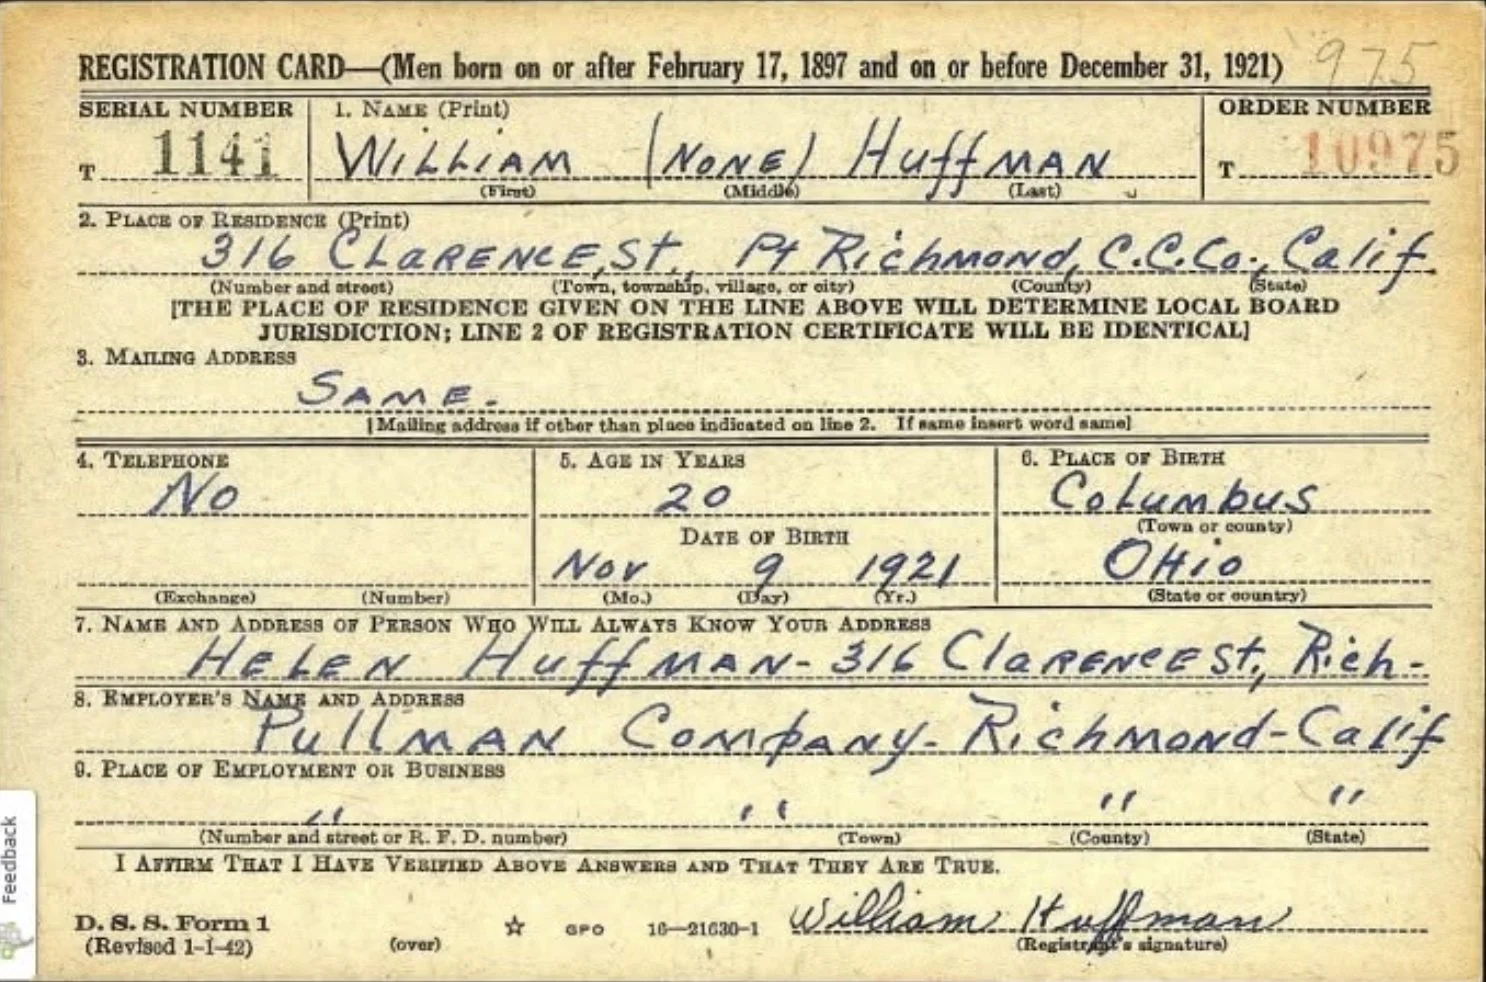 975
REGISTRATION CARD—(Men born on or after February 17, 1897 and on or before December 31, 1921)
SERIAL NUMBER
T 1141
1. NAME (Print)
WILLIAM (NONE) HuffMAN
(First) (Middle) (Last)
ORDER NUMBER
T 10975
2. PLACE OF RESIDENCE (Print)
316 CLARENCE, St., Pt Richmond, C.C.Co., Calif.
(Number and street) (Town, township, village, or city) (County) (State)
[THE PLACE OF RESIDENCE GIVEN ON THE LINE ABOVE WILL DETERMINE LOCAL BOARD
JURISDICTION; LINE 2 OF REGISTRATION CERTIFICATE WILL BE IDENTICAL]
3. MAILING ADDRESS
SAME.
[Mailing address if other than place indicated on line 2. If same insert word same]
4. TELEPHONE
No
(Exchange) (Number)
5. AGE IN YEARS
20
DATE OF BIRTH
Nov 9 1921
(Mo.) (Day) (Yr.)
6. PLACE OF BIRTH
Columbus
(Town or county)
OHio
(State or country)
7. NAME AND ADDRESS OF PERSON WHO WILL ALWAYS KNOW YOUR ADDRESS
HELEN HuffMAN - 316 Clarence St., Rich-
8. EMPLOYER'S NAME AND ADDRESS
Pullman Company - Richmond - Calif
9. PLACE OF EMPLOYMENT OR BUSINESS
" " " "
(Number and street or R. F. D. number) (Town) (County) (State)
I AFFIRM THAT I HAVE VERIFIED ABOVE ANSWERS AND THAT THEY ARE TRUE.
D. S. S. Form 1
(Revised 1-1-42) (over) ☆ GPO 16—21630-1
William Huffman
(Registrant's signature)
Feedback